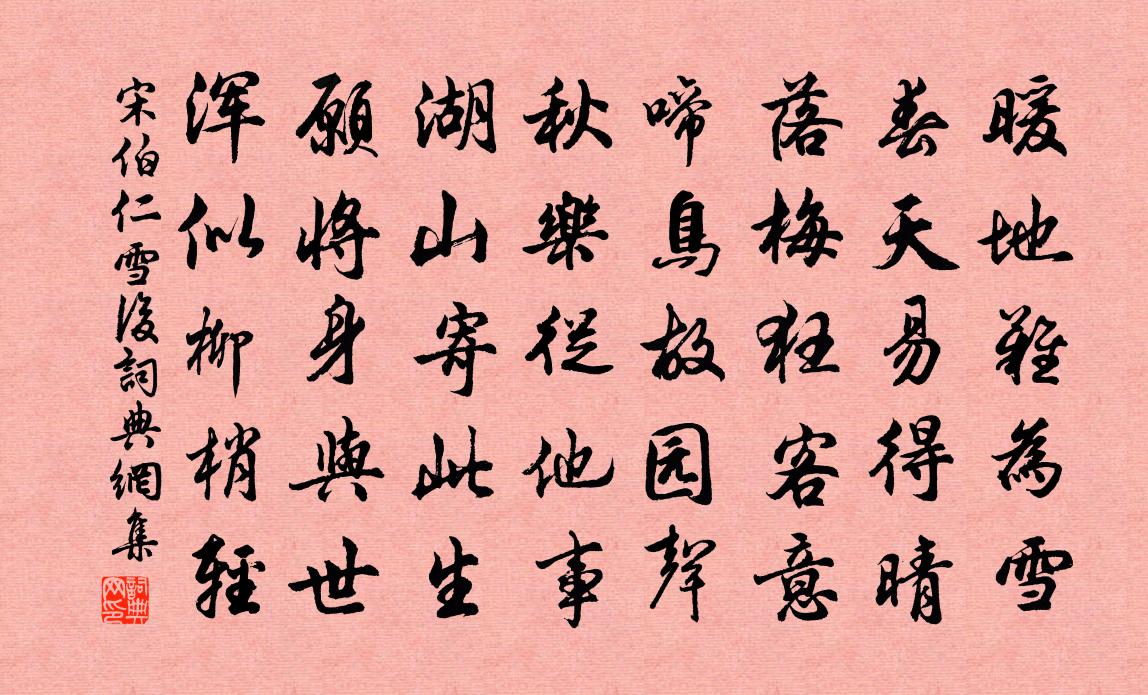 暖地難為雪
春天易得晴
落梅狂客意
啼鳥故园聲
秋樂從他事
湖山寄此生
願將身與世
浑似柳梢輕
宋伯仁雪後詞典網集
詞典网印